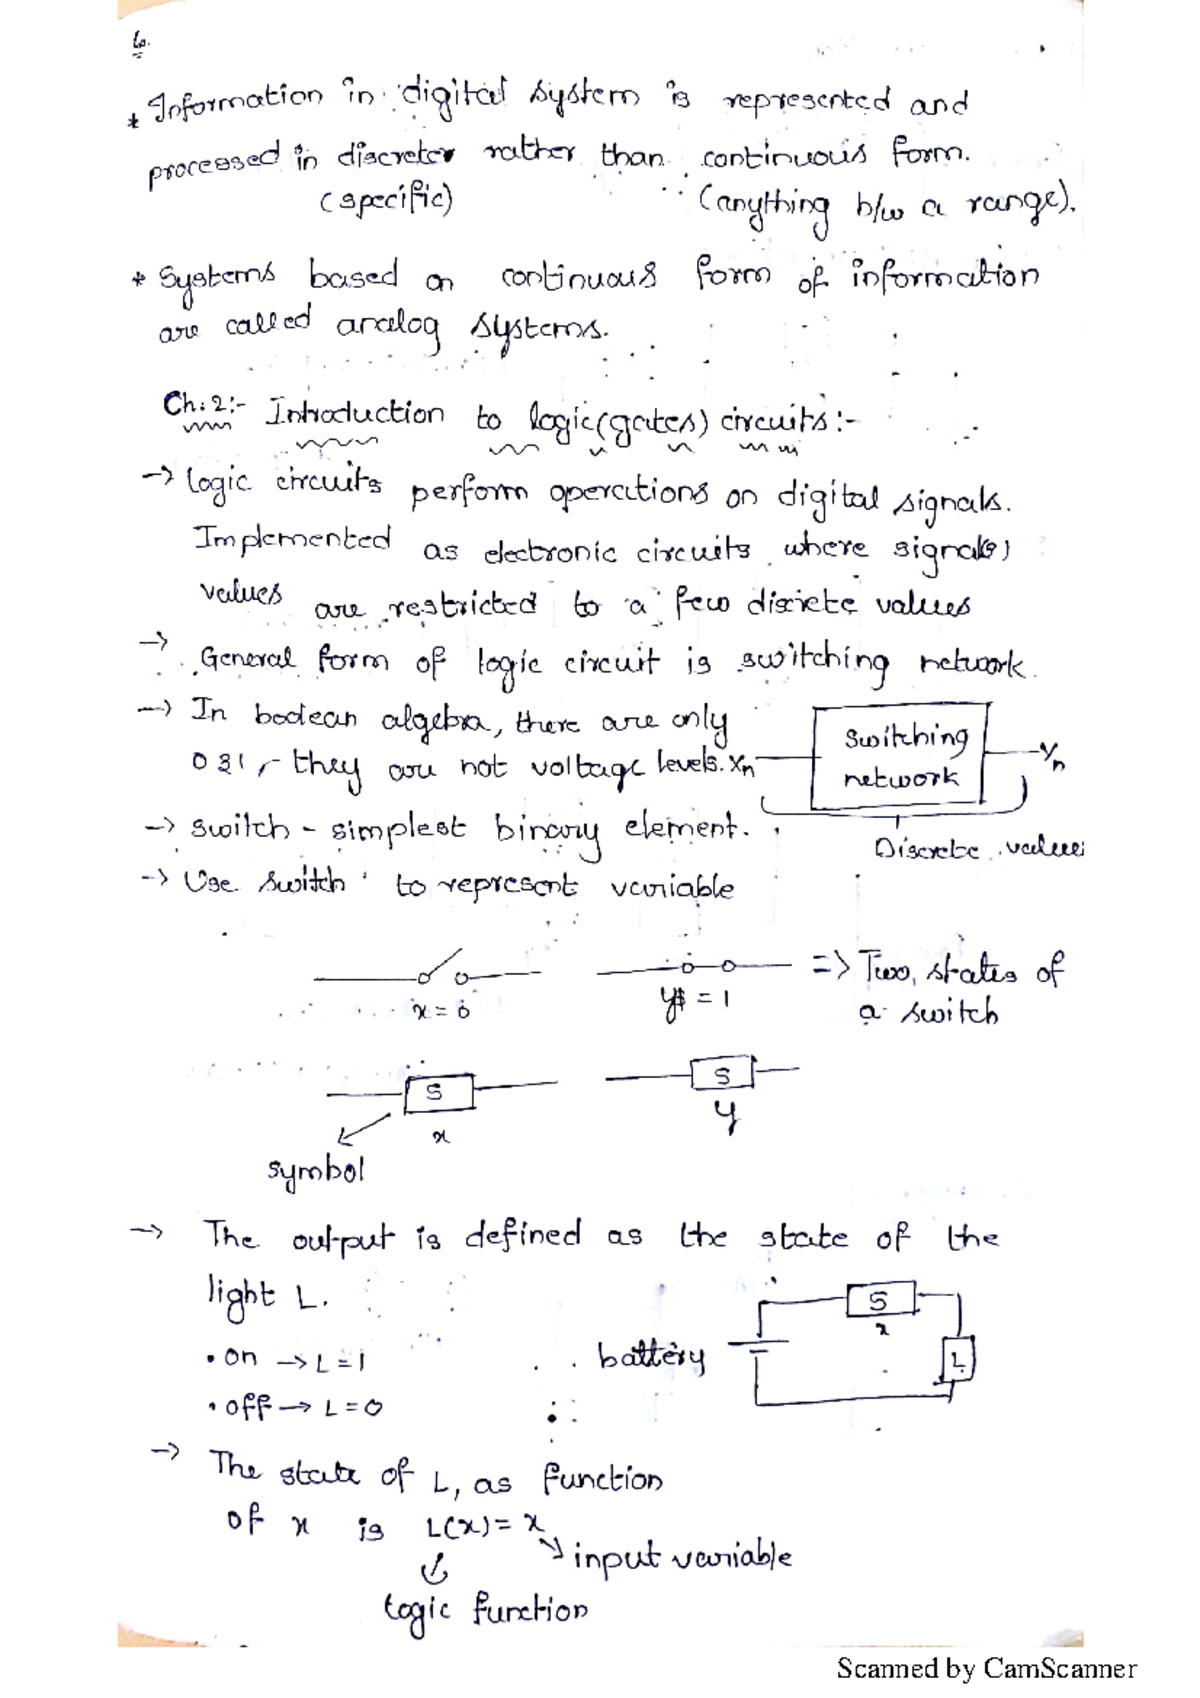 6.
* Information in digital system is represented and
processed in discreter rather than continuous form.
(specific) (anything b/w a range).
* Systems based on continuous form of information
are called analog systems.
Ch:2:- Introduction to logic(gates) circuits:-
-> logic circuits perform operations on digital signals.
Implemented as electronic circuits where signal(s)
values are restricted to a few discrete values
-> General form of logic circuit is switching network.
-> In boolean algebra, there are only
0 & 1, they are not voltage levels.
Xn Switching network Yn
Discrete values
-> switch - simplest binary element.
-> Use switch to represent variable
x = 0 y = 1 => Two states of
a switch
S S
x y
symbol
-> The output is defined as the state of the
light L.
• on -> L = 1
• off -> L = 0
battery S x L
-> The state of L, as function
of x is L(x) = x
input variable
logic function
Scanned by CamScanner